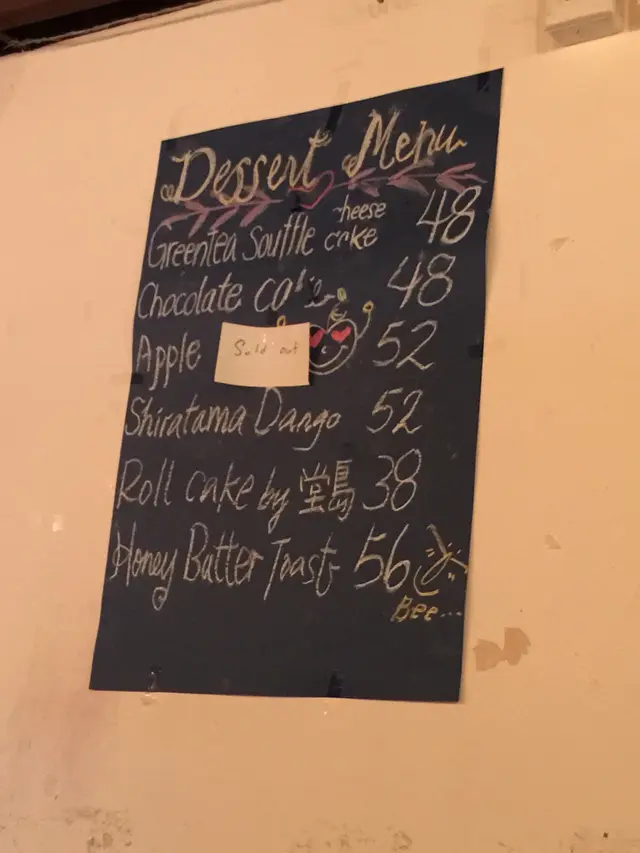 Dessert Menu
Greentea Souffle cheese cake 48
Chocolate 48
Apple Sold out 52
Shiratama Dango 52
Roll cake by 堂島 38
Honey Butter Toast 56
Bee...